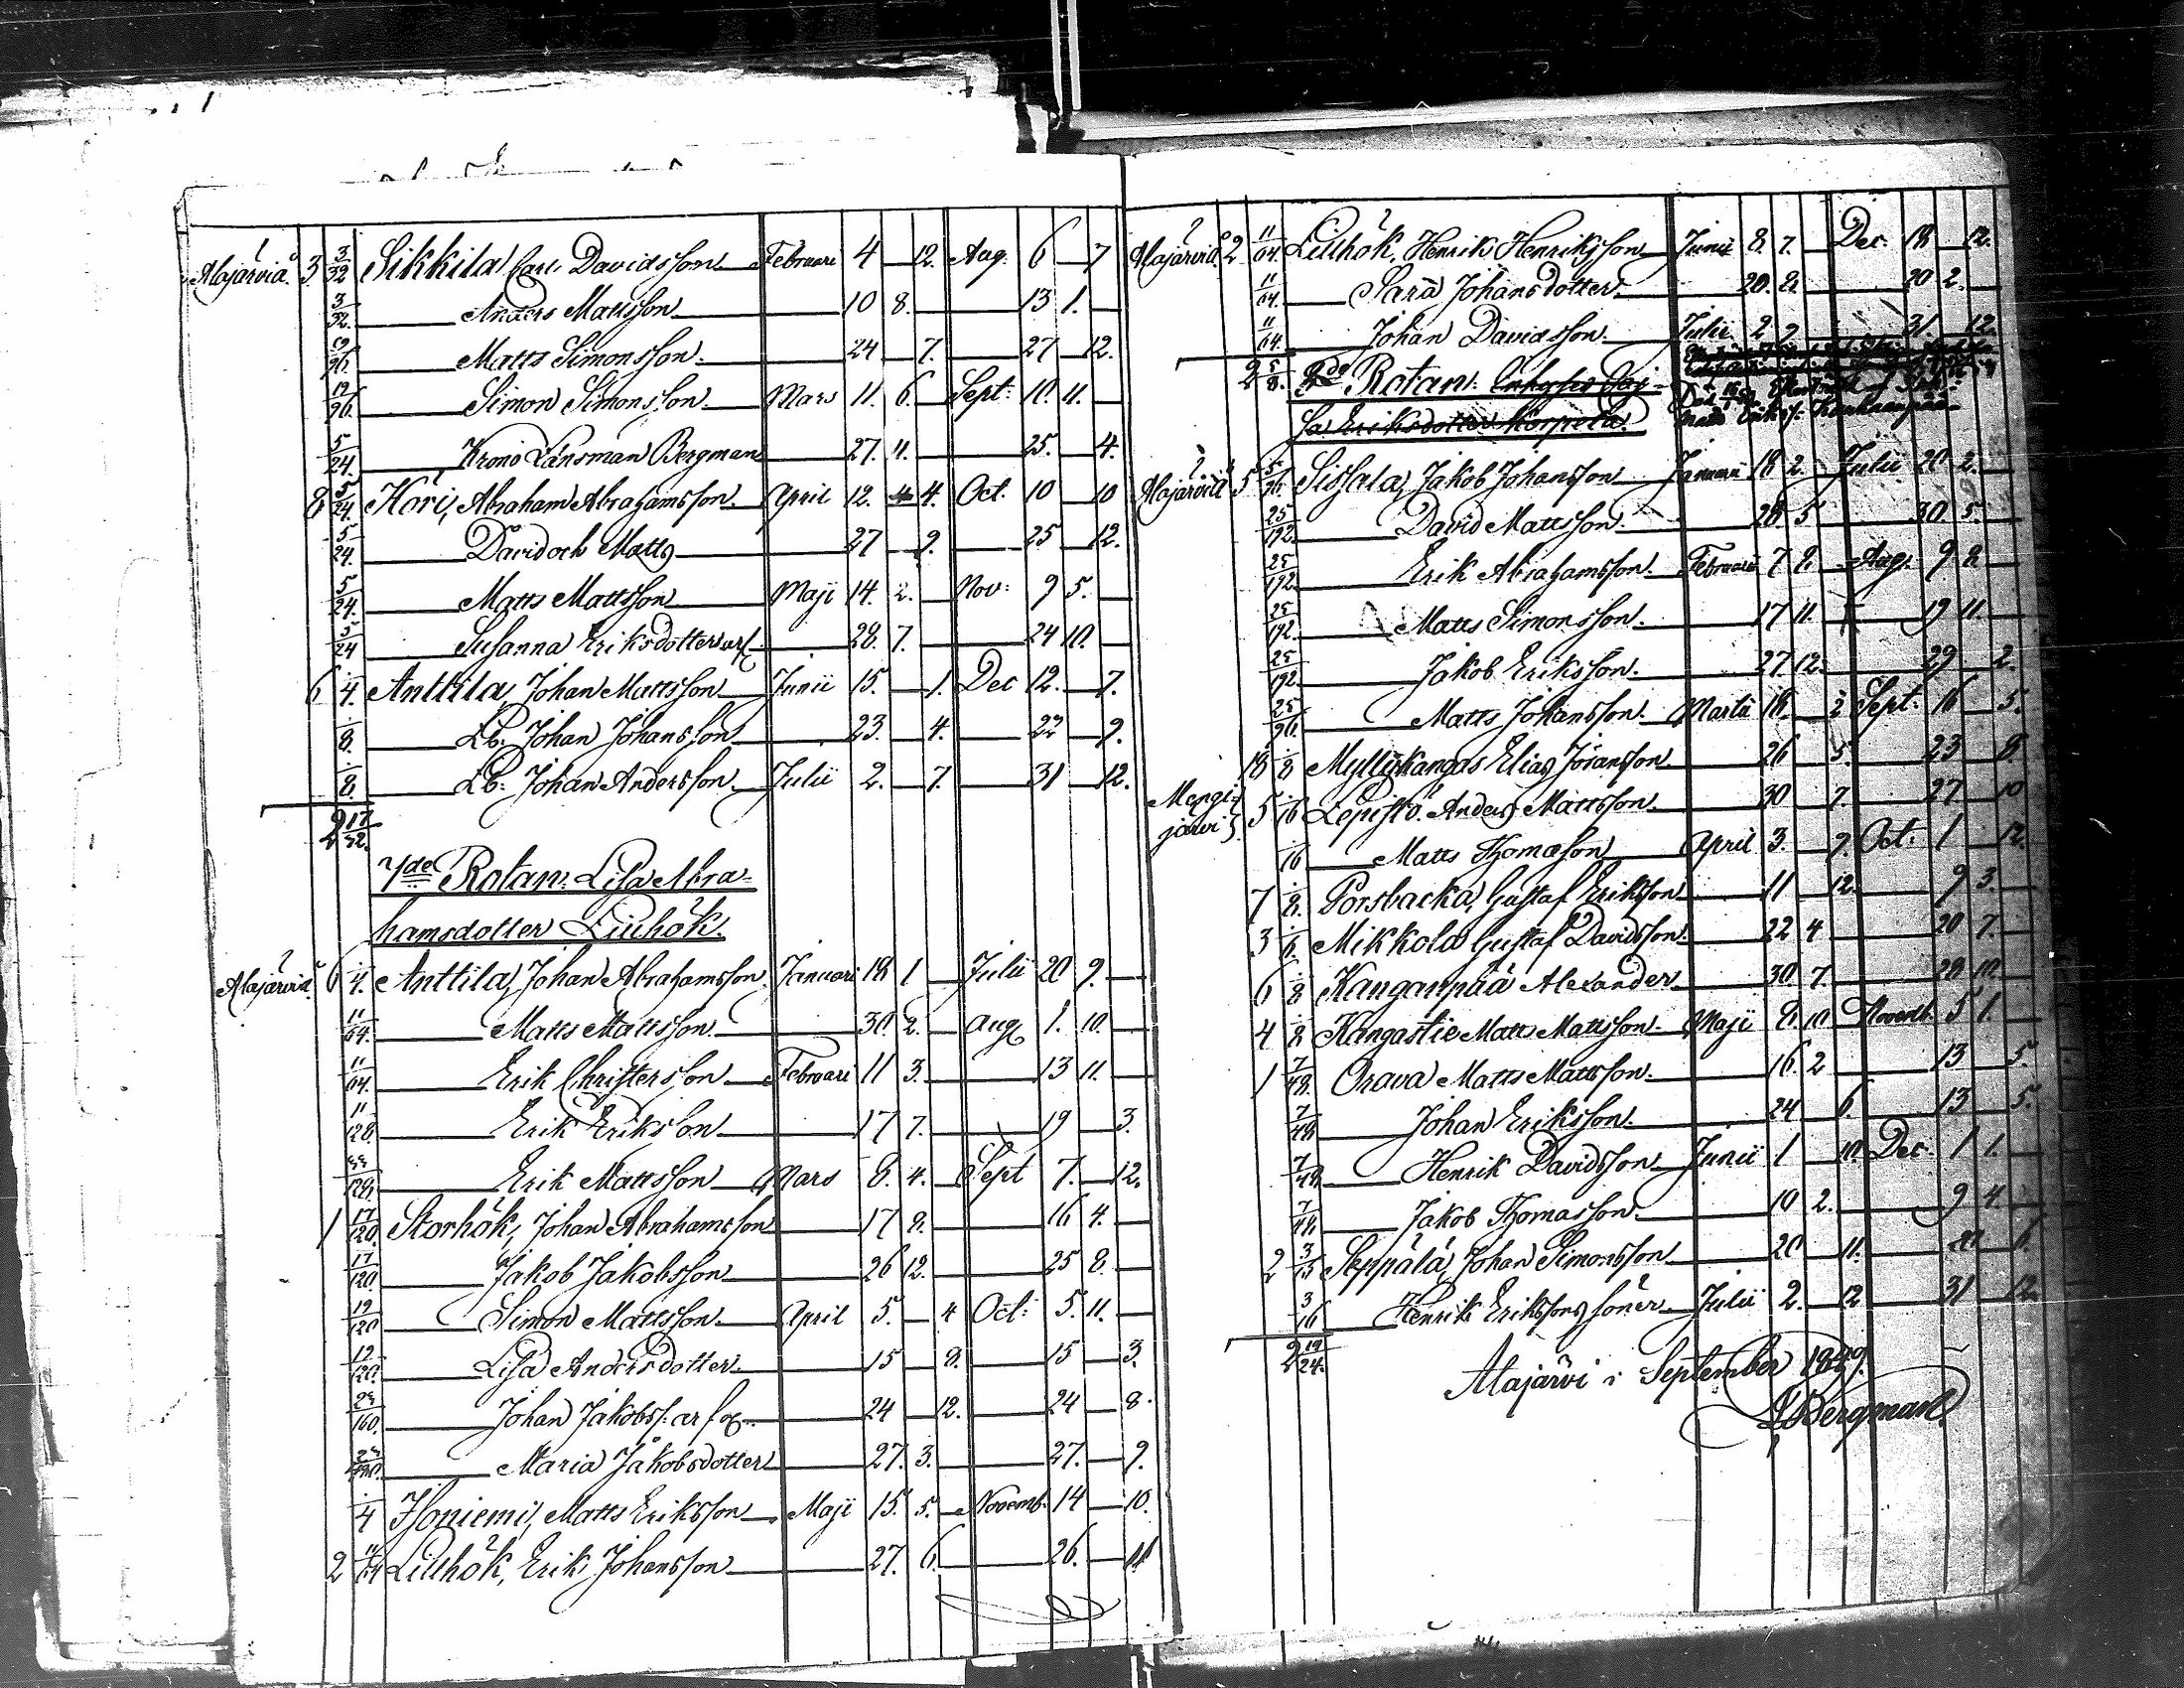 Alajärvi å 3 3/32 Sikkila Carl Davidsson Februari 4 — 12. Aug: 6 — 7
3/32. Anders Mattsson 10 8. 13 1.
19/96. Matts Simonsson 24 — 7. 27 — 12.
12/96. Simon Simonsson Mars 11. 6. Sept: 10. 11.
5/24. Krono Länsman Bergman 27. 11. 25. — 4.
8 5/24. Köri, Abraham Abrahamsson April 12. 4. Oct. 10 — 10
5/24. David och Matts 27 — 9. 25 — 12.
5/24. Matts Mattsson Maji 14. 2. Nov: 9 5.
5/24 Susanna Eriksdotters arf. 28. 7. 24 10.
6 1/4. Anttila, Johan Mattsson Junii 15. — 1. Dec 12. — 7.
1/8. Lb. Johan Johansson 23. — 4. 22 — 9.
1/8. Lb. Johan Andersson Julii 2. — 7. 31 — 12.
2 17/32.
7de Rotan: Lisa Abra-
hamsdotter Lillhök.
Alajärvi å 6 1/4. Anttila, Johan Abrahamsson Januari 18 1 Julii 20 9.
11/64. Matts Mattsson 30. 2. Aug 1. 10.
11/64. Erik Christersson Februari 11 3. 13 11.
11/128. Erik Eriksson 17 7. 19 — 3.
Erik Mattsson Mars 8. 4. Sept 7. — 12.
1 17/120. Storhök, Johan Abrahamsson 17 9. 16 4.
17/120. Jakob Jakobsson 26 12. 25 8.
19/120 Simon Mattsson April 5. — 4 Oct: 5. 11.
Lisa Andersdotter 15 — 8. 15 — 3.
Johan Jakobs. arf 24 — 12. 24 — 8.
Maria Jakobsdotter 27. 3. 27. — 9.
1/4 Isoniemi, Matts Eriksson Maji 15. 5. Novemb. 14 — 10.
2 11/64 Lillhök, Erik Johansson 27. 6. 26. — 11
Alajärvi å 2 11/64. Lillhök, Henrik Henriksson Junii 8. 7. Dec. 18 — 12.
11/64. Sara Johansdotter 20. 2. 20 2.
11/64. Johan Davidsson Julii 2 7 31. — 12.
2 5/8. 8de Rotan: Enhyses Caj-
sa Eriksdotter Korpela.
Alajärvi å 5 5/96. Sissala, Jakob Johansson Januarii 18 2. Julii 20 2.
25/192. David Mattsson 28 5 30 5.
25/192. Erik Abrahamsson Februarii 7 8. Aug. 9 8
25/192. Matts Simonsson 17 11. 19 11.
25/192. Jakob Eriksson 27. 12. 29 — 2.
25/96. Matts Johansson Martii 18. — 2 Sept: 16 — 5.
18 1/8 Myllykangas Elias Jöransson 26 — 5. 23 — 8.
Mengi-
järvi 5 1/16 Lepistö Anders Mattsson 30 — 7. 27 — 10
1/16 Matts Thomasson April 3. — 9. Oct: 1 — 12.
7 1/8. Porsbacka, Gustaf Eriksson 11 — 12. 9 3.
3 1/6. Mikkola Gustaf Davidsson 22 4 20 7.
6 1/8 Kanganpää Alexander 30. 7. 28 10.
4 1/8 Kangastie Matts Mattsson Maji 8. 10 Novemb. 5 1.
1 7/48. Orava Matts Mattsson 16. 2 13 — 5.
7/48 Johan Eriksson 24 — 6. 13 — 5.
7/48 Henrik Davidsson Junii 1 — 10. Dec. 1 1.
7/48. Jakob Thomasson 10 2. 9 4.
2 3/15 Seppälä, Johan Simonsson 20 — 11. 20 — 6.
3/16 Henrik Erikssons söner Julii 2. — 12 31 — 12.
2 19/24. Alajärvi i September 1849.
Bergman